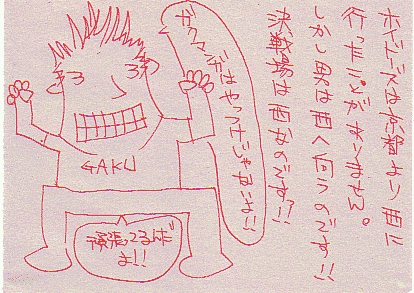 ボイドーズは京都より西に
行ったことがありません。
しかし男は西へ向うのです!!
決戦場は西なのです!!
ガクマンガはやっつけじゃないよ!!
GAKU
頑張ってるんだ
よ!!